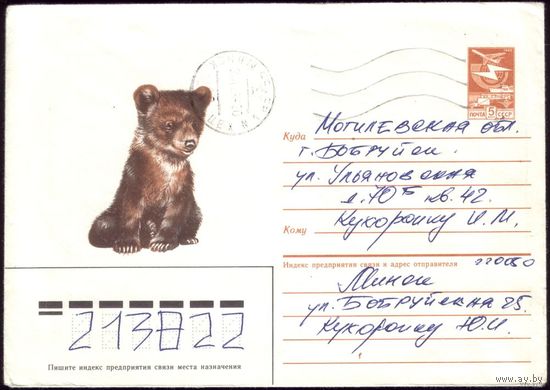 ПОЧТА 5к СССР
Куда Могилевская обл.
г. Бобруйск
ул. Ульяновская
д. 70Б кв. 42.
Кому Кукоройку И.М.
Индекс предприятия связи и адрес отправителя 220050
Минск
ул. Бобруйская 25
Кукоройку Ю.И.
213822
Пишите индекс предприятия связи места назначения
www.ay.by